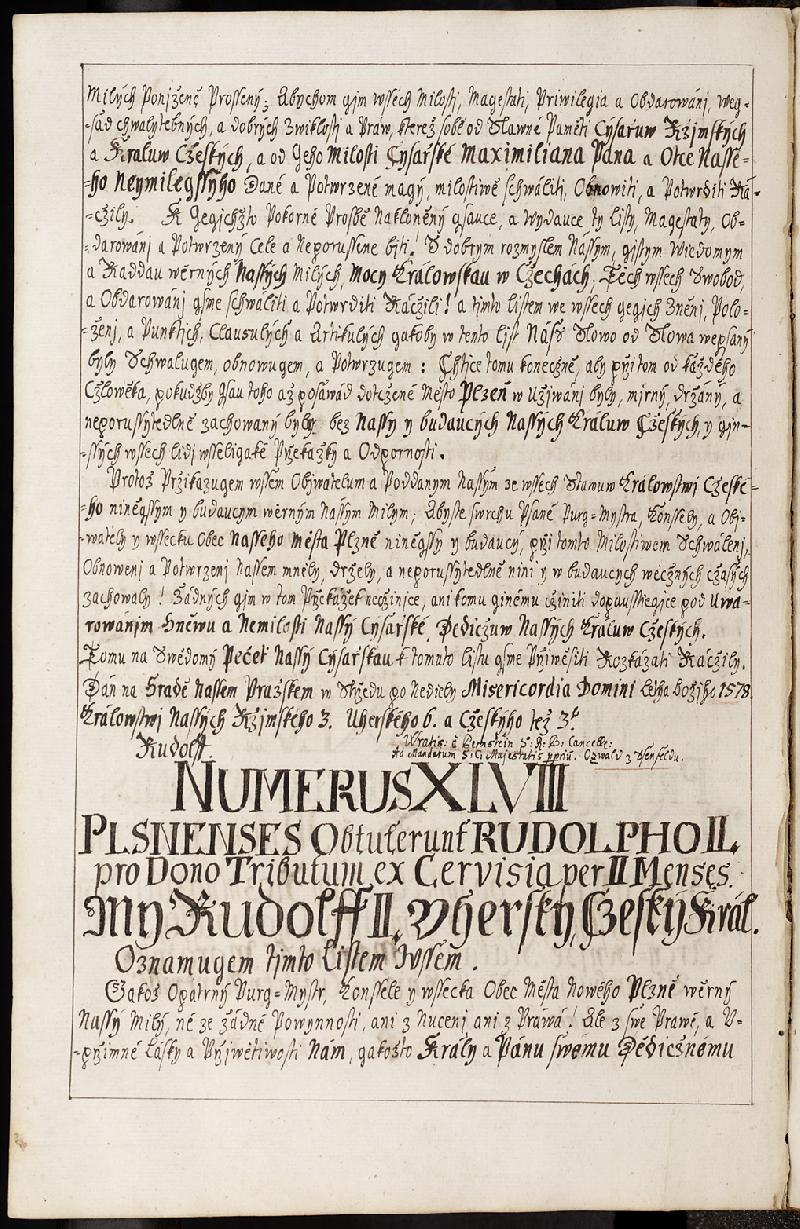 Milých Ponjženě Prosseny; Abychom gim wssech Milostj, Magestatj, Priwilegia a Obdarowánj, weg-
-sad chwalytebných, a dobrých Zwiklostj a Praw, kterež sobě od Slawné Pamětj Cýsaruw Ržjmských
a Králuw Cžeských, a od Geho Milosti Cysařské Maximiliana Pána a Otce Nasse-
-ho Neymilegssýho Dané a Potwrzené magý, milostiwě schwáliti, Obnowiti, a Potwrditi Rá-
-cžily. K Gegichžto Pokorné Prosbě Nakloněný gsauce, a Wydauce ty Listy, Magestaty, Ob-
-darowánj a Potwrzený Celé a Neporussené býti! S dobrým rozmyslem Nássym, gistym Wiedomym
a Raddau wěrných Nassých Milých, Mocý Královskau w Cžechách, Těch wssech Swobod,
a Obdarowánj gsme schwáliti a Potwrditi Ráčžili! a timto Listem we wssech gegich Zněnj, Polo-
-ženj, a Punktých, Clausulých a Artikulých gakoby w tento List Náss Slowo od Slowa wepsaný
byly Schwalugem, obnowugem, a Potwrzugem : Chtice tomu konečžně, aby přitom od každého
Cžlowěka, pokudžby Gsau toho až posáwád dotcžené Město Plzeň w Užjwánj byly, mjrný, držáný, a
neporussytedlně zachowaný byly bez Nassý y budaucých Nassých Králuw Cžeských, y gin-
-ssých wssech lidj wsseligaké Přzekažky a Odpornosti.
Protož Přzikazugem wssem Obywatelum a Poddaným Nassým ze wssech Stawuw Králowstwj Cžeské-
-ho niněgssým y budaucým wěrným Nassým Milým; Abyste swrchu Psané Purg-Mystra, Konssely, a Oby-
-wately y wssecku Obec Nasseho Města Plzně niněgssý y budaucý, při tomto Milostiwém Schwálenj,
Obnowenj a Potwrzenj Nassem měly, drželý, a neporussýtedlně nini y w budaucých wěčžných cžasých
zachowaly! Žádných gim w tom Přzekážek nečžinjce, ani komu ginému cžiniti dopausstěgice pod Uwa-
rowaným Hněwu a Nemilosti Nassý Cýsařské, Dedičžuw Nassých Králuw Cžeských.
Tomu na Swědomý Pečet Nassý Cýsařskau k tomuto Listu gsme Přjwěsiti Rozkázati Ráčžily.
Dán na Hradě Nassem Pražskem w Středu po Neděly Misericordia Domini Létha božjho 1578.
Králowstwj Nassých Ržjmského 3. Uherského 6. a Cžeskýho též 3º
Rudolff. Wratis: à Bernstein S: R: B: Cancell:
Ad Mandatum S: C: Majestatis ppriu: Ozwald z Ssenfeldu.
NUMERUS XLVIII
PLSNENSES Obtulerunt RUDOLPHO II.
pro Dono Tributum ex Cervisia per II Menses.
My Rudolff II. Vhersky, Cžeský Král.
Oznamugem tjmto Listem Wssem.
Gakož Opatrný Purg-Mystr, Konssele y wssecka Obec Města Nowého Plzně wěrný
Nassý Milý, né ze žádné Powynnosti, ani z Nucenj ani z Práwa! Ale z swé Prawé, a V-
-přjmné Lásky a Přjwětiwosti Nám, gakožto Králý a Pánu swému Dědičžnému